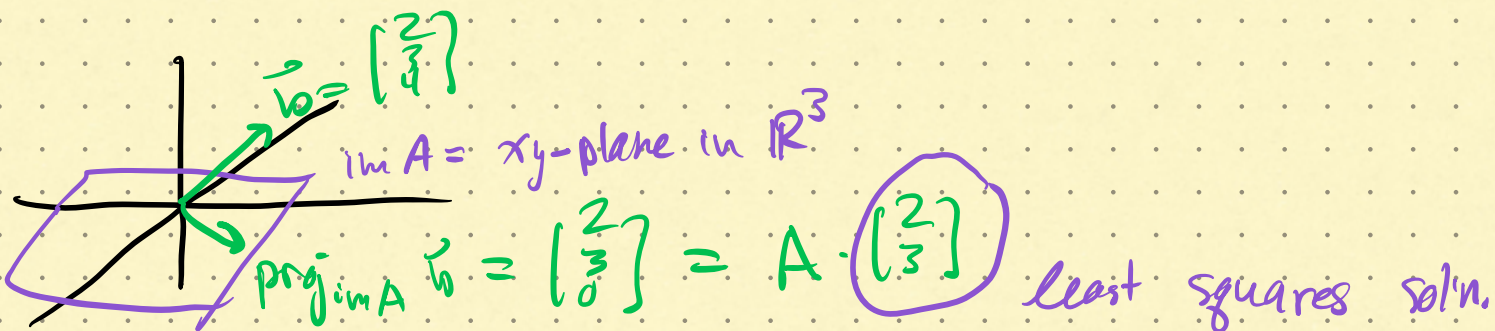 b⃗ = [2 3 4]
im A = xy-plane in ℝ³
proj_{im A} b⃗ = [2 3 0] = A · [2 3] least squares sol'n.